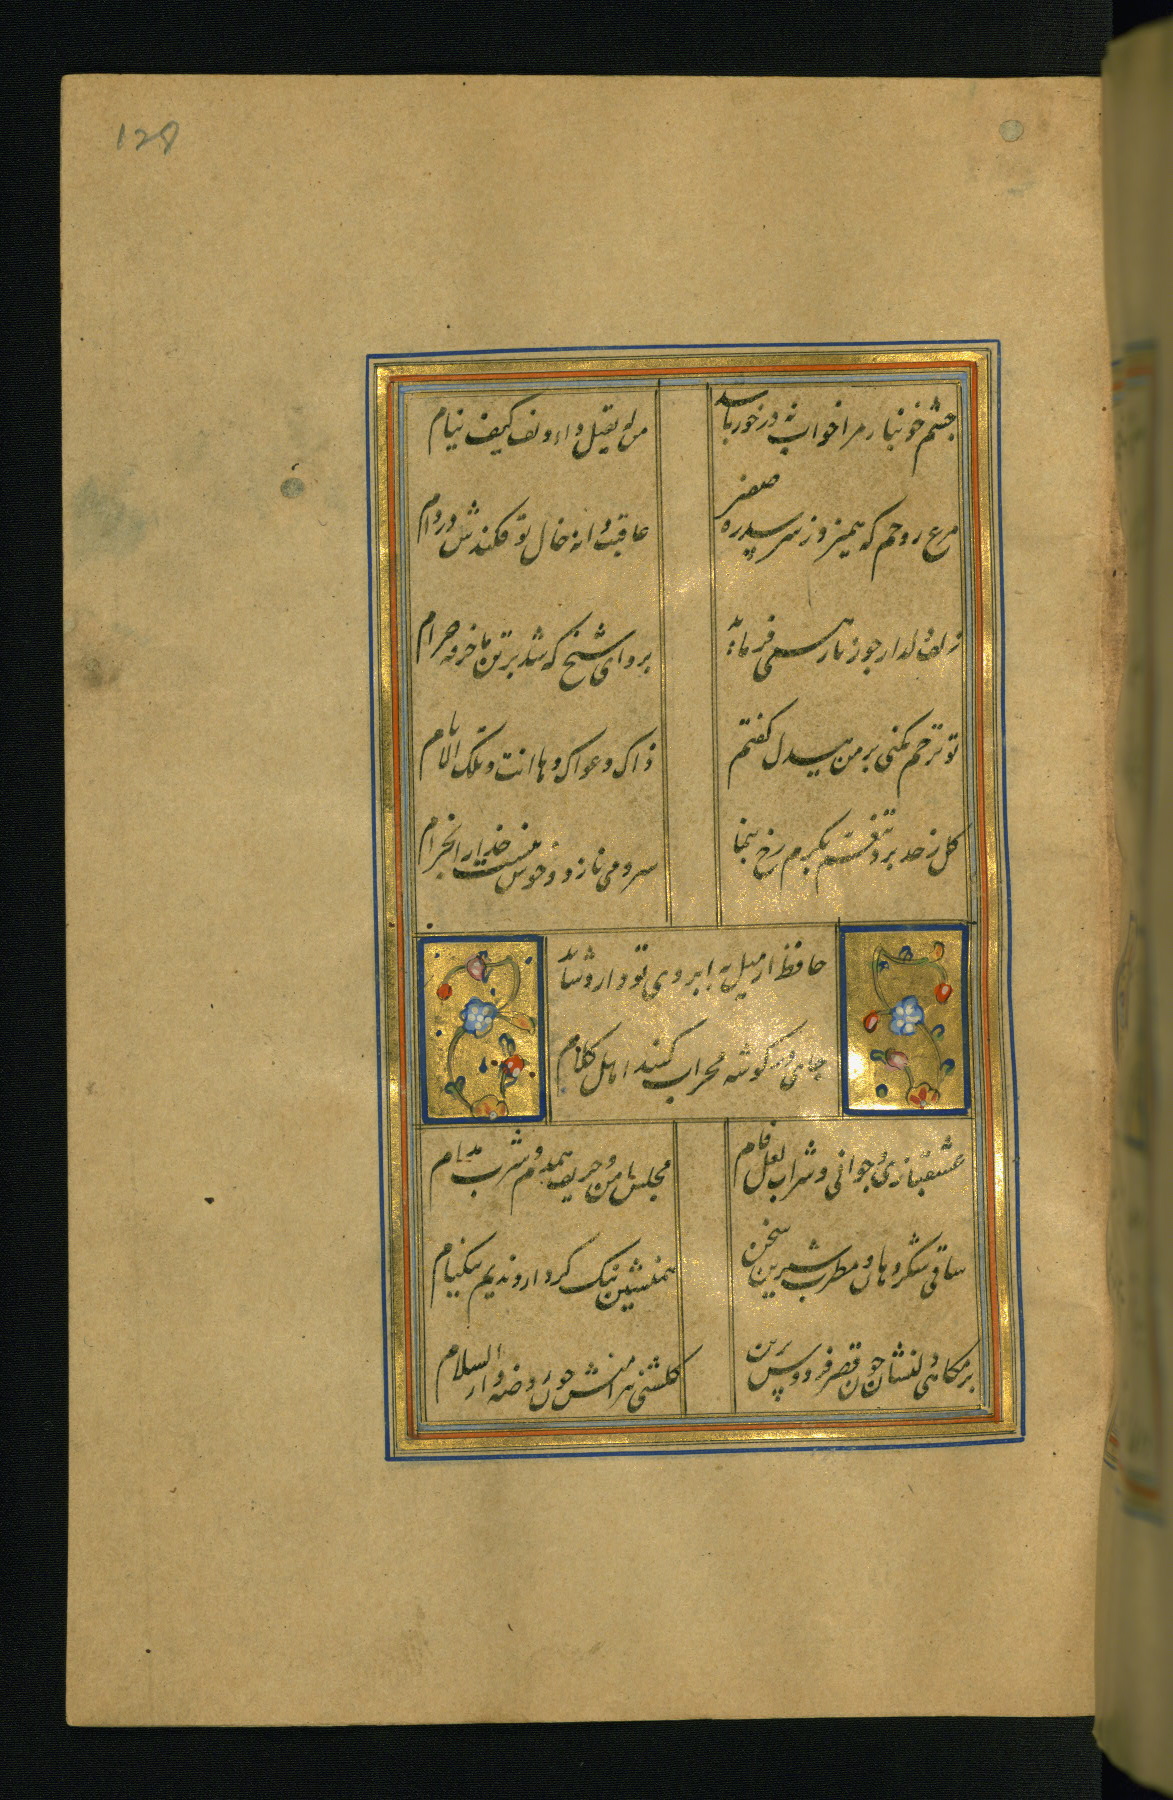 128
چشم خونبار مرا خواب نه در خور باشد
من له یقتل داء دنف کیف ینام
مرغ روحم که همیزد ز سر سدره صفیر
عاقبت دانه خال تو فکندش در دام
زلف دلدار چو زنار همی فرماید
برو ای شیخ که شد بر تن ما خرقه حرام
تو ترحم نکنی بر من بیدل گفتم
ذاک دعوای وها انت و تلک الایام
کل ز حد برد تنعم بکرم رخ بنما
سرو می نازد و خوش نیست خدا را بخرام
حافظ ار میل به ابروی تو دارد شاید
جای در گوشه محراب کنند اهل کلام
عشقبازی و جوانی و شراب لعل فام
مجلس امن و حریف همدم و شرب مدام
ساقی شکر دهان و مطرب شیرین سخن
همنشین نیک کردار و ندیم نیکنام
بر مکانی دلنشان چون قصر فردوس برین
کلشنی پیرامنش چون روضه دار السلام